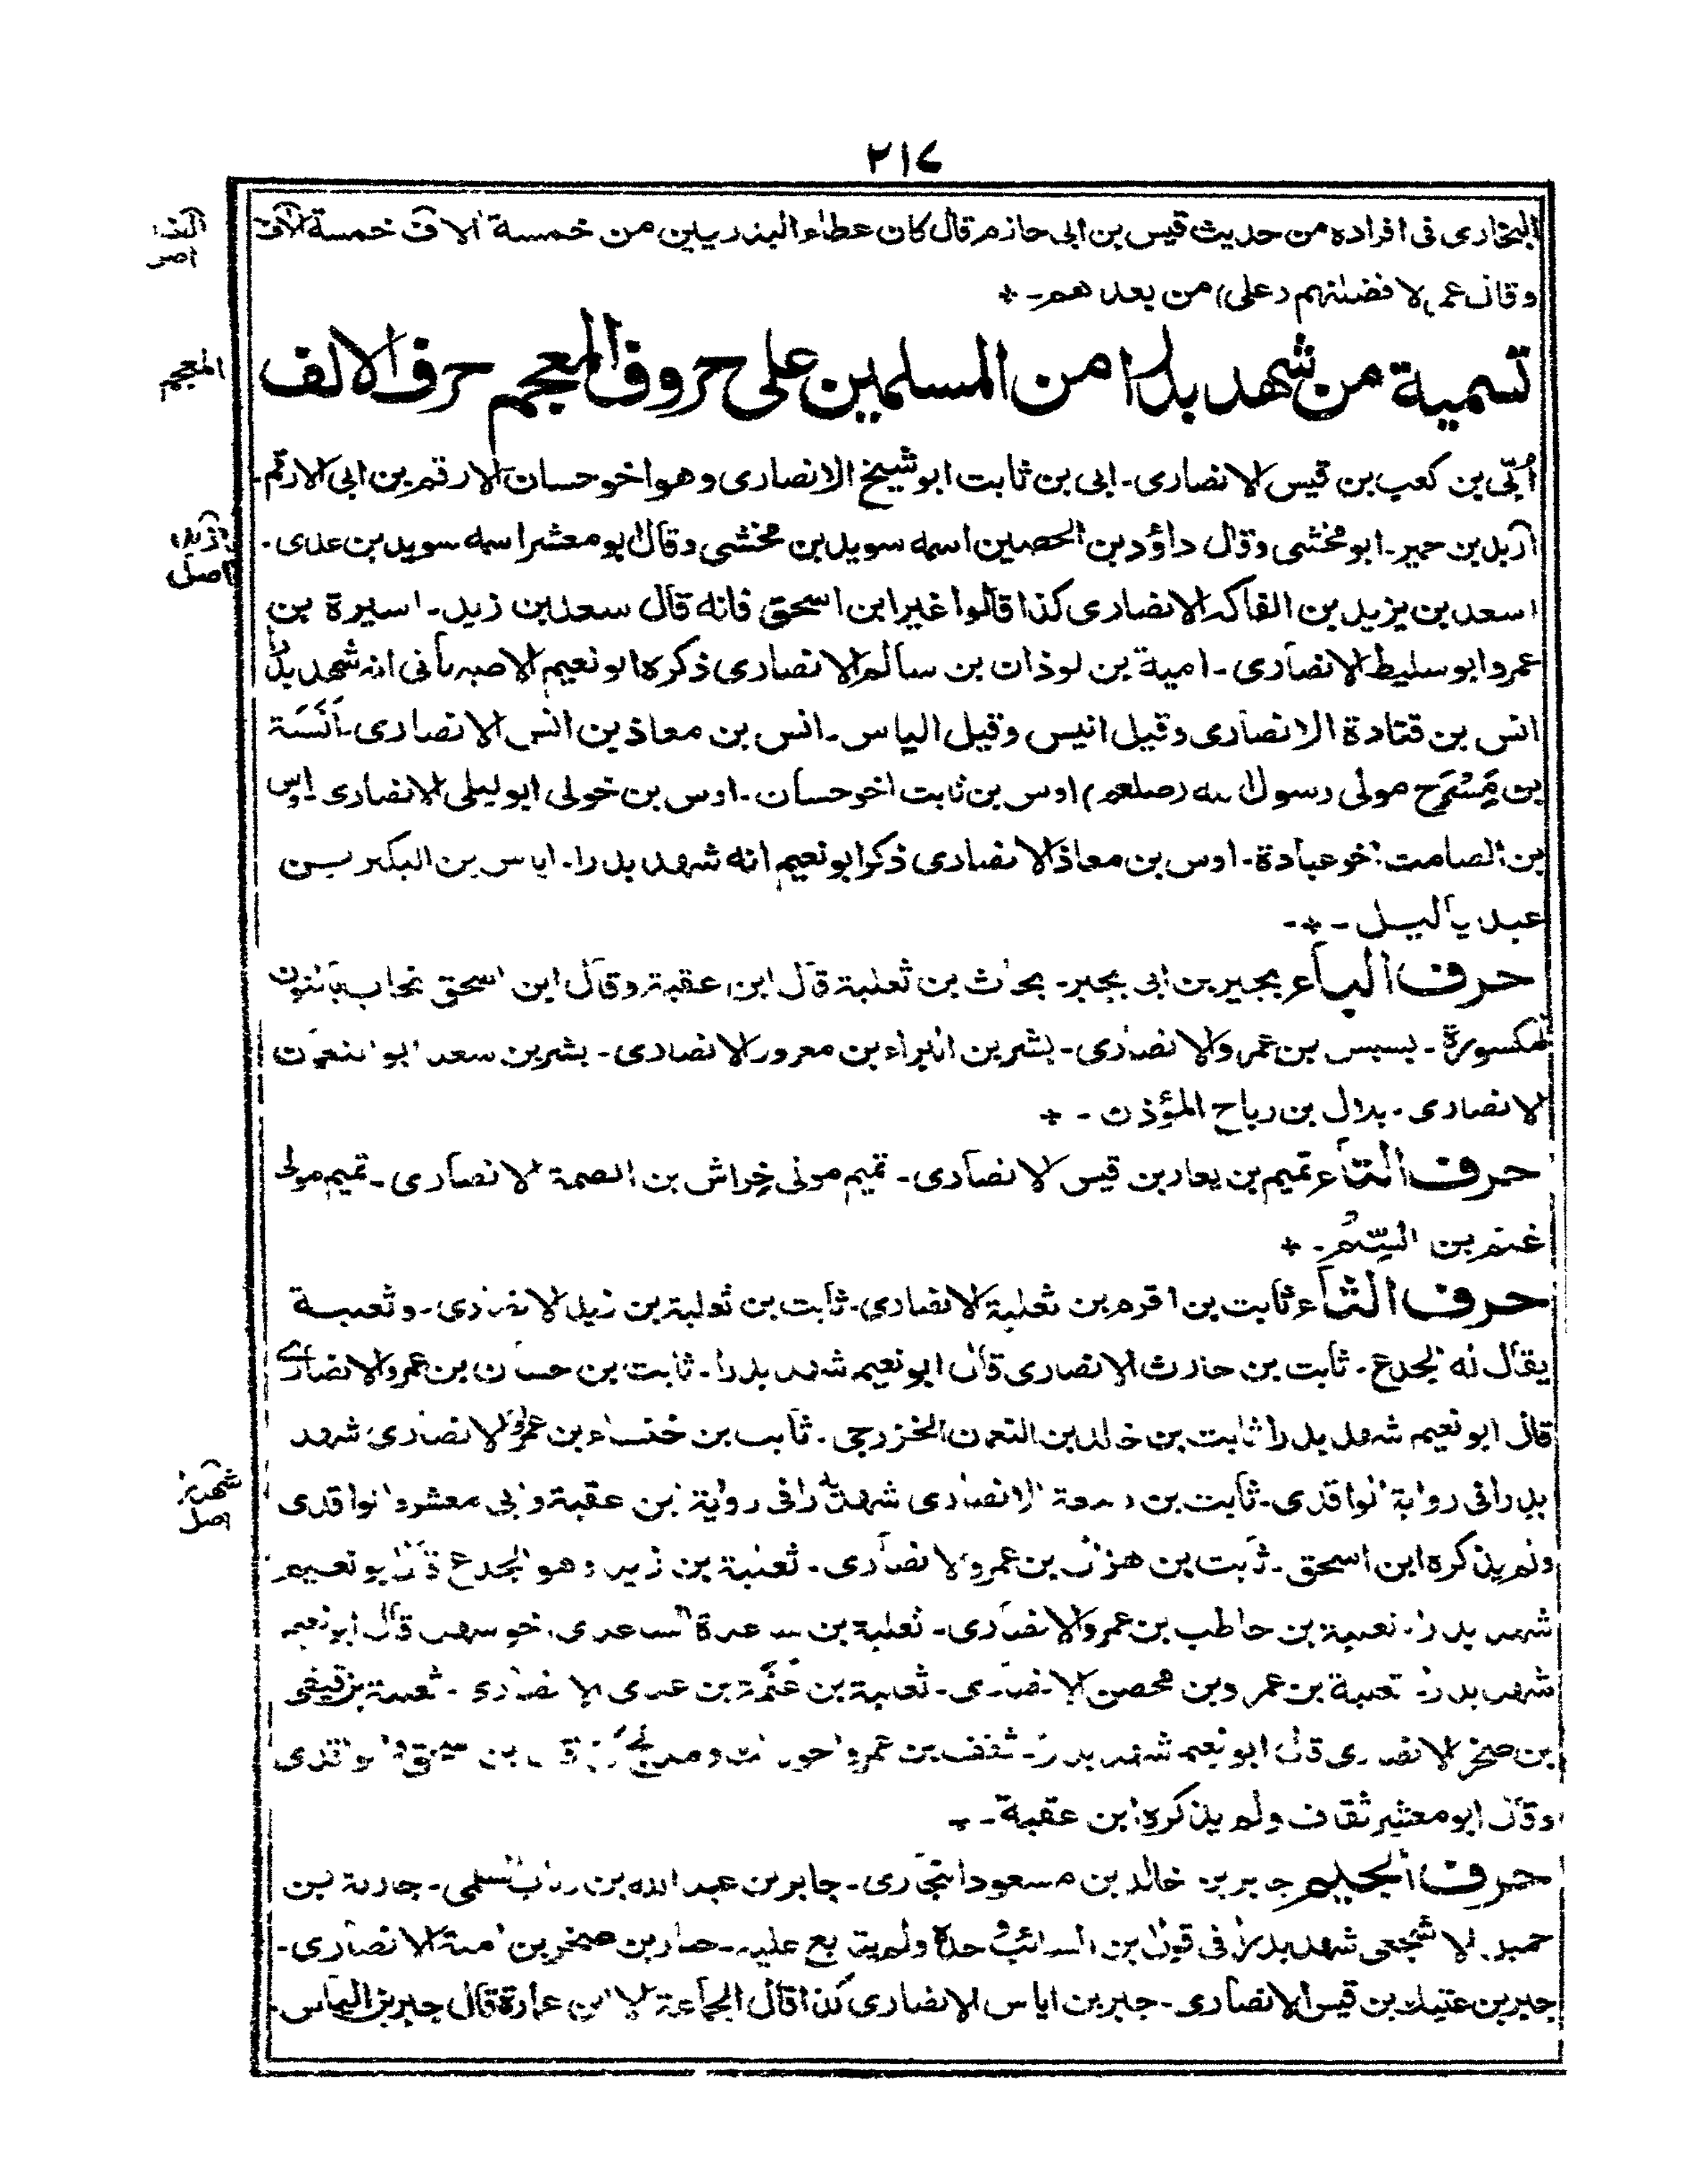 ٢١٧
البخاری فی افراده من حدیث قیس بن ابی حازم قال کان عطاء البدریین من خمسة الاف خمسة الاف
وقال عمر لا فضلنهم (علی) من بعد هم۔
تسمیة من شهد بدرا من المسلمین علی حروف المعجم حرف الالف
اُبَّی بن کعب بن قیس الانصاری۔ ابی بن ثابت ابو شیخ الانصاری وهو اخو حسان الارقم بن ابی الارقم۔
اربد بن حمیر۔ ابو مخشی وقال داؤد بن الحصین اسمه سوید بن مخشی وقال ابو معشر اسمه سوید بن عدی۔
اسعد بن یزید بن الفاکه الانصاری کذا قالوا غیر ابن اسحق فانه قال سعد بن زید۔ اسیرة بن
عمرو ابو سلیط الانصاری۔ امیة بن لوذان بن سالم الانصاری ذکره ابو نعیم الاصبهانی انه شهد بدرا
انس بن قتادة الانصاری وقیل انیس وقیل الیاس۔ انس بن معاذ بن انس الانصاری۔ اَنَسَة
بن مَسْرَح مولی رسول الله (صلعم) اوس بن ثابت اخو حسان۔ اوس بن خولی ابو لیلی الانصاری اوس
بن الصامت اخو عبادة۔ اوس بن معاذ الانصاری ذکر ابو نعیم انه شهد بدرا۔ ایاس بن البکیر بن
عبد یالیل۔
حرف الباء بجیر بن ابی بجیر۔ بحاث بن ثعلبة قال ابن عقبة وقال ابن اسحق نحاب بالنون
المکسورة۔ بسبس بن عمرو الانصاری۔ بشر بن البراء بن معرور الانصاری۔ بشر بن سعد ابو النعمان
الانصاری۔ بلال بن رباح المؤذن۔
حرف التاء تمیم بن یعار بن قیس الانصاری۔ تمیم مولی خِراش بن الصمة الانصاری۔ تمیم مولی
غنم بن السِّلم۔
حرف الثاء ثابت بن اقرم بن ثعلبة الانصاری۔ ثابت بن ثعلبة بن زید الانصاری۔ وثعلبة
یقال له الجدع۔ ثابت بن حارث الانصاری قال ابو نعیم شهد بدرا۔ ثابت بن حسان بن عمرو الانصاری
قال ابو نعیم شهد بدرا ثابت بن خالد بن النعمان الخزرجی۔ ثابت بن خنساء بن عمرو الانصاری شهد
بدرا فی روایة الواقدی۔ ثابت بن ربیعة الانصاری شهد بدرا فی روایة ابن عقبة وابی معشر والواقدی
ولم یذکره ابن اسحق۔ ثابت بن هزال بن عمرو الانصاری۔ ثعلبة بن زید وهو الجدع قال ابو نعیم
شهد بدرا۔ ثعلبة بن حاطب بن عمرو الانصاری۔ ثعلبة بن ساعدة الساعدی اخو سهل قال ابو نعیم
شهد بدرا۔ ثعلبة بن عمرو بن محصن الانصاری۔ ثعلبة بن عَنَمَة بن عدی الانصاری۔ ثعلبة بن قیظی
بن صخر الانصاری قال ابو نعیم شهد بدرا۔ ثقف بن عمرو اخو مالك ومدلج قال بن اسحق والواقدی
وقال ابو معشر ثقاف ولم یذکره ابن عقبة۔
حرف الجیم جابر بن خالد بن مسعود النجاری۔ جابر بن عبد الله بن رئاب السلمی۔ جاریة بن
حمیر الاشجعی شهد بدرا فی قول بن السائب وحده ولم یتابع علیه۔ جبار بن صخر بن امیة الانصاری۔
جبر بن عتیك بن قیس الانصاری۔ جبر بن ایاس الانصاری کذا قال الجماعة الا ابن عمارة قال جبر بن الیاس۔
المعجم
اصل
اصل